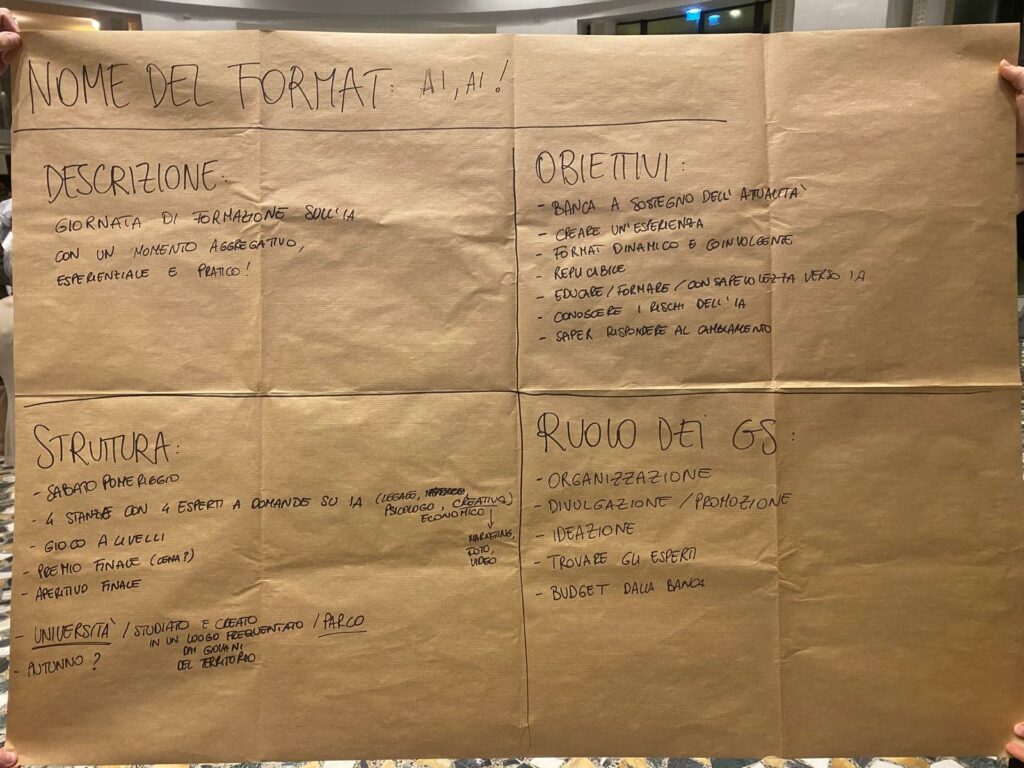 NOME DEL FORMAT: AI, AI!
DESCRIZIONE:
GIORNATA DI FORMAZIONE SULL'IA
CON UN MOMENTO AGGREGATIVO,
ESPERIENZIALE E PRATICO!
OBIETTIVI:
- BANCA A SOSTEGNO DELL'ATUALITÀ
- CREARE UN'ESPERIENZA
- FORMAT DINAMICO E COINVOLGENTE
- REPLICABILE
- EDUCARE/FORMARE/CONSAPEVOLEZZA VERSO IA
- CONOSCERE I RISCHI DELL'IA
- SAPER RISPONDERE AL CAMBIAMENTO
STRUTTURA:
- SABATO POMERIGGIO
- 4 STANZE CON 4 ESPERTI A DOMANDE SU IA (LEGALE,
PSICOLOGO, CREATIVO)
ECONOMICO
MARKETING,
FOTO,
VIDEO
- GIOCO A LIVELLI
- PREMIO FINALE (CENA?)
- APERITIVO FINALE
- UNIVERSITÀ / STUDIATO E CREATO
IN UN LUOGO FREQUENTATO / PARCO
DAI GIOVANI
DEL TERRITORIO
- AUTUNNO?
RUOLO DEI GS:
- ORGANIZZAZIONE
- DIVULGAZIONE / PROMOZIONE
- IDEAZIONE
- TROVARE GLI ESPERTI
- BUDGET DALLA BANCA